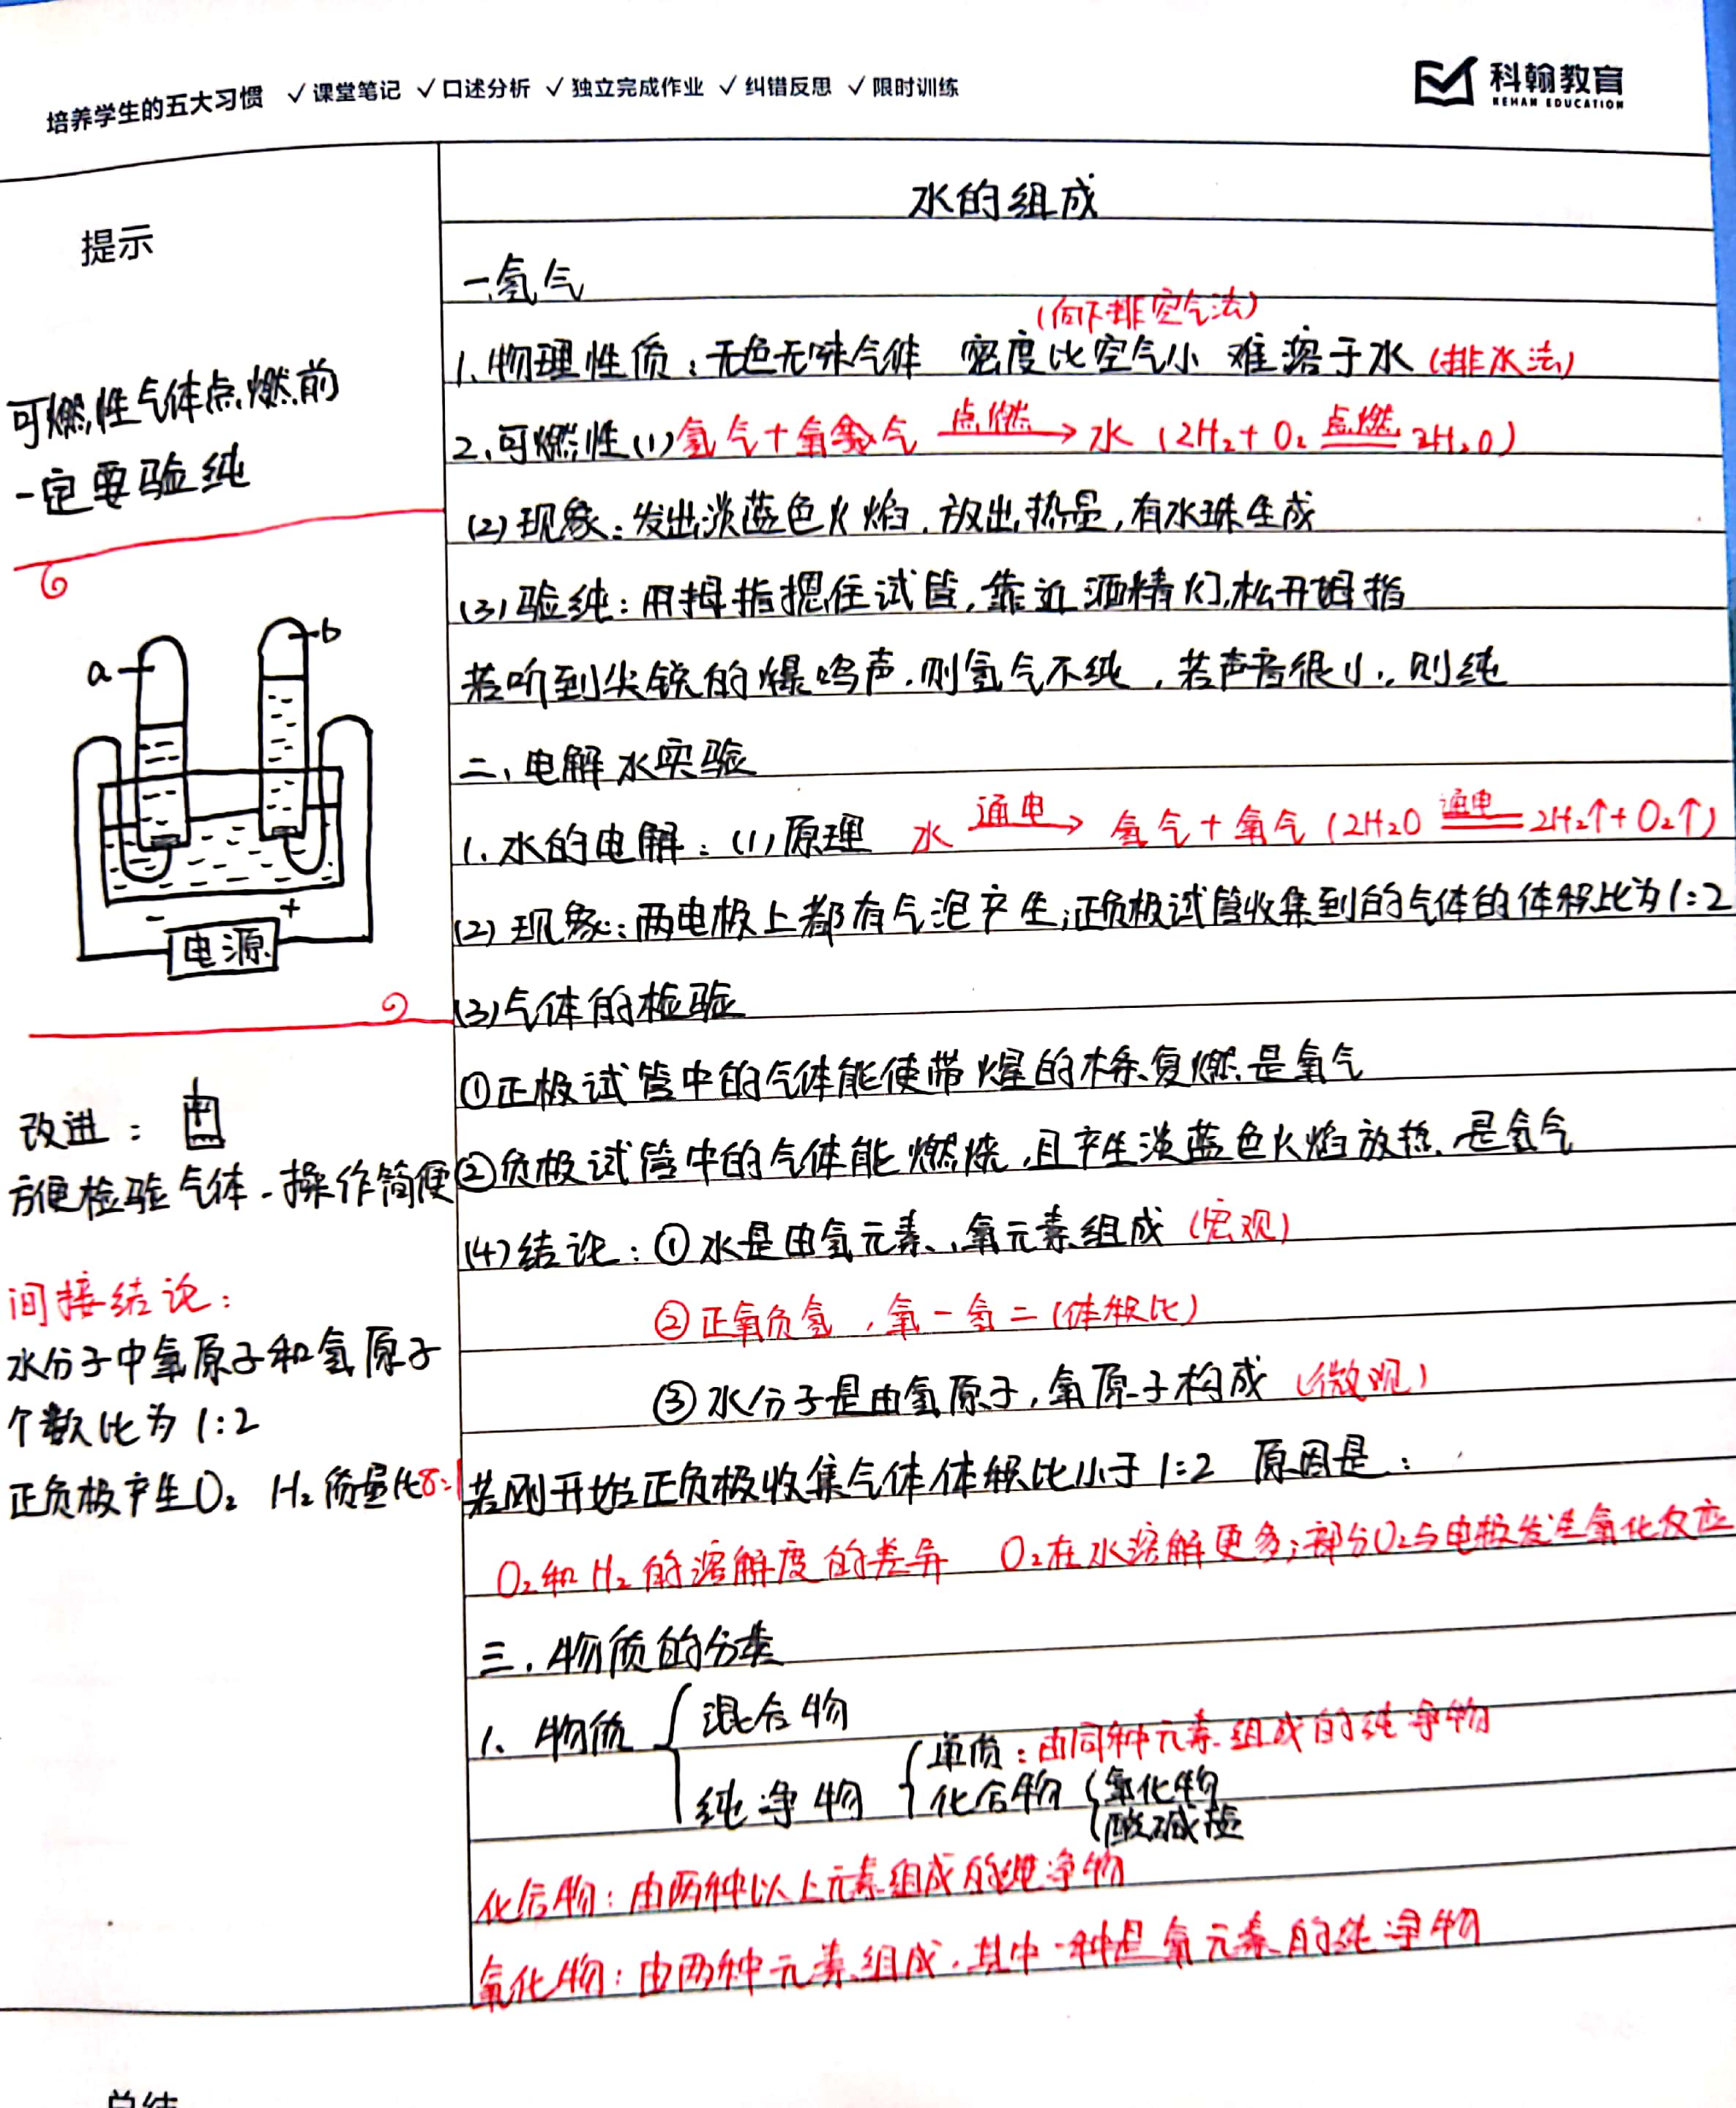 培养学生的五大习惯 ✓课堂笔记 ✓口述分析 ✓独立完成作业 ✓纠错反思 ✓限时训练
科翰教育
KEHAN EDUCATION
提示
可燃性气体点燃前
一定要验纯
a
b
- +
电源
改进：
方便检验气体、操作简便
间接结论：
水分子中氧原子和氢原子
个数比为1:2
正负极产生O₂ H₂质量比8:1
水的组成
一.氢气
(向下排空气法)
1.物理性质：无色无味气体 密度比空气小 难溶于水(排水法)
2.可燃性(1)氢气+氧气 点燃→ 水 (2H₂+O₂ 点燃═ 2H₂O)
(2)现象：发出淡蓝色火焰,放出热量,有水珠生成
(3)验纯：用拇指摁住试管,靠近酒精灯,松开拇指
若听到尖锐的爆鸣声,则氢气不纯,若声音很小,则纯
二、电解水实验
1.水的电解：(1)原理 水 通电→ 氢气+氧气 (2H₂O 通电═ 2H₂↑+O₂↑)
(2)现象：两电极上都有气泡产生;正负极试管收集到的气体的体积比为1:2
(3)气体的检验
①正极试管中的气体能使带火星的木条复燃是氧气
②负极试管中的气体能燃烧,且产生淡蓝色火焰放热,是氢气
(4)结论：①水是由氢元素、氧元素组成(宏观)
②正氧负氢,氧一氢二(体积比)
③水分子是由氢原子,氧原子构成(微观)
若刚开始正负极收集气体体积比小于1:2 原因是：
O₂和H₂的溶解度的差异 O₂在水溶解更多;部分O₂与电极发生氧化反应
三.物质的分类
1.物质 { 混合物
纯净物 { 单质：由同种元素组成的纯净物
化合物 { 氧化物
酸碱盐
化合物：由两种以上元素组成的纯净物
氧化物：由两种元素组成,其中一种是氧元素的纯净物